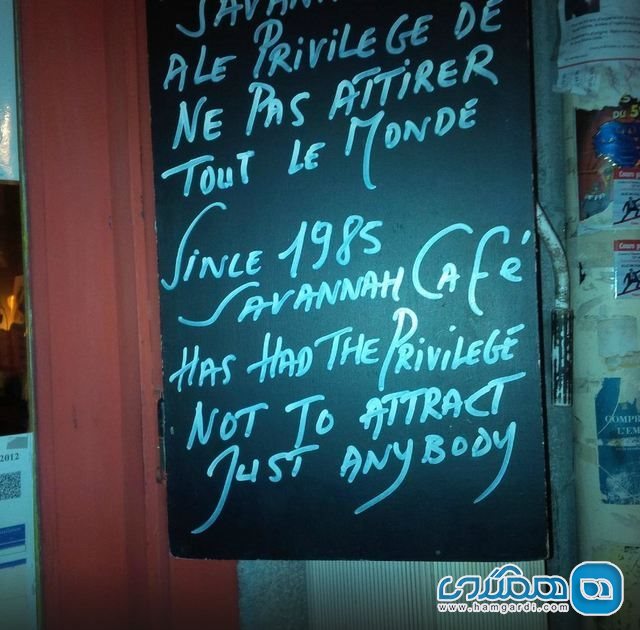 SAVANNAH
A LE PRIVILEGE DE
NE PAS ATTIRER
TOUT LE MONDE
SINCE 1985
SAVANNAH CAFÉ
HAS HAD THE PRIVILEGE
NOT TO ATTRACT
JUST ANYBODY
2012
DU 5
COMPR
L'EM
همگردی
www.hamgardi.com